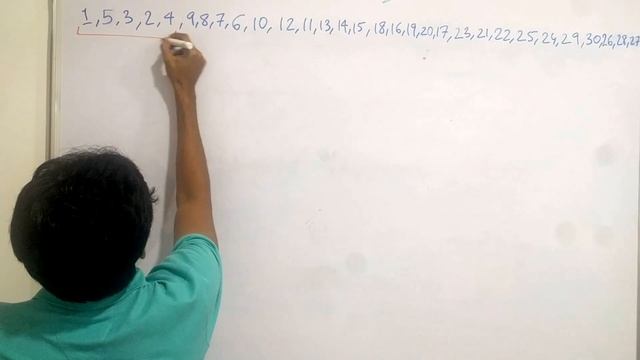 1, 5, 3, 2, 4, 9, 8, 7, 6, 10, 12, 11, 13, 14, 15, 18, 16, 19, 20, 17, 23, 21, 22, 25, 24, 29, 30, 26, 28, 27